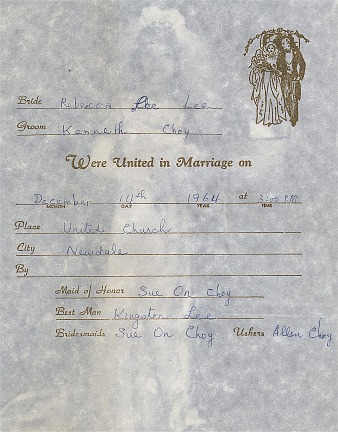 Bride Rebecca Lee Lee
Groom Kenneth Choy
Were United in Marriage on
December 19th 1964 at 3:00 P.M.
MONTH DAY YEAR TIME
Place United Church
City Newdale
By
Maid of Honor Sue On Choy
Best Man Kingston Lee
Bridesmaids Sue On Choy Ushers Allen Choy